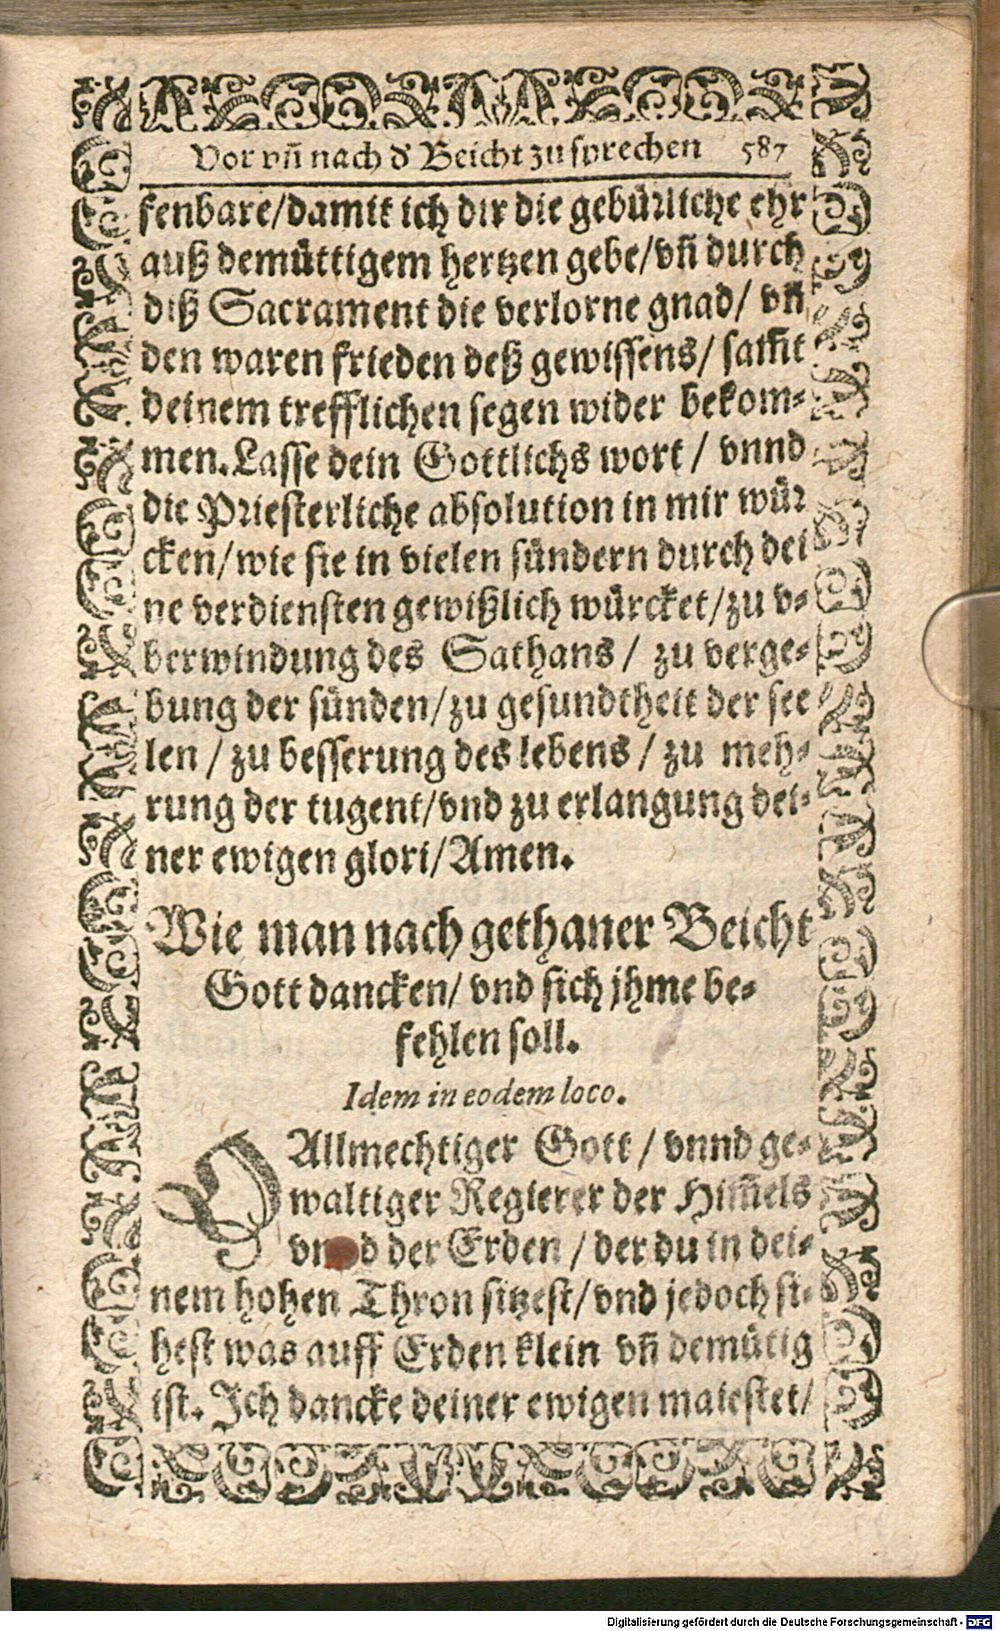 Vor vñ nach d' Beicht zu sprechen 587
fenbare/damit ich dir die gebürliche ehr
auß demüttigem hertzen gebe/vñ durch
diß Sacrament die verlorne gnad/ vñ
den waren frieden deß gewissens/ sam̃t
deinem trefflichen segen wider bekom-
men. Lasse dein Göttlichs wort / vnnd
die Priesterliche absolution in mir wür
cken/wie sie in vielen sündern durch dei
ne verdiensten gewißlich würcket/zu v-
berwindung des Sathans/ zu verge-
bung der sünden/zu gesundtheit der see
len / zu besserung des lebens / zu meh-
rung der tugent/vnd zu erlangung dei-
ner ewigen glori/Amen.
Wie man nach gethaner Beicht
Gott dancken/ vnd sich jhme be-
fehlen soll.
Idem in eodem loco.
O Allmechtiger Gott / vnnd ge-
waltiger Regierer der Him̃els
vnnd der Erden / der du in dei-
nem hohen Thron sitzest/vnd jedoch si-
hest was auff Erden klein vñ demütig
ist. Ich dancke deiner ewigen maiestet/
Digitalisierung gefördert durch die Deutsche Forschungsgemeinschaft - DFG